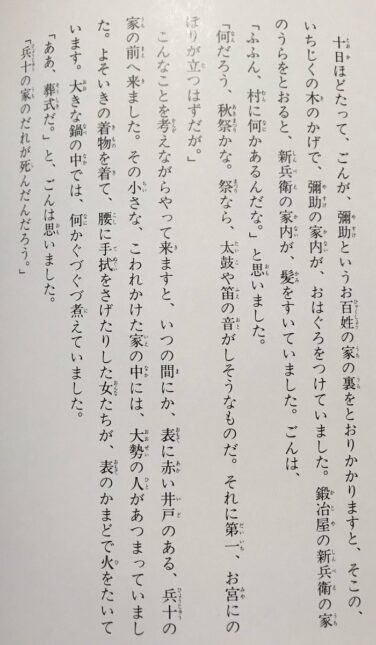 十日ほどたって、ごんが、彌助というお百姓の家の裏をとおりかかりますと、そこの、
いちじくの木のかげで、彌助の家内が、おはぐろをつけていました。鍛冶屋の新兵衛の家
のうらをとおると、新兵衛の家内が、髪をすいていました。ごんは、
「ふふん、村に何かあるんだな。」と思いました。
「何だろう、秋祭かな。祭なら、太鼓や笛の音がしそうなものだ。それに第一、お宮にの
ぼりが立つはずだが。」
こんなことを考えながらやって来ますと、いつの間にか、表に赤い井戸のある、兵十の
家の前へ来ました。その小さな、こわれかけた家の中には、大勢の人があつまっていまし
た。よそいきの着物を着て、腰に手拭をさげたりした女たちが、表のかまどで火をたいて
います。大きな鍋の中では、何かぐづぐづ煮えていました。
「ああ、葬式だ。」と、ごんは思いました。
「兵十の家のだれが死んだんだろう。」